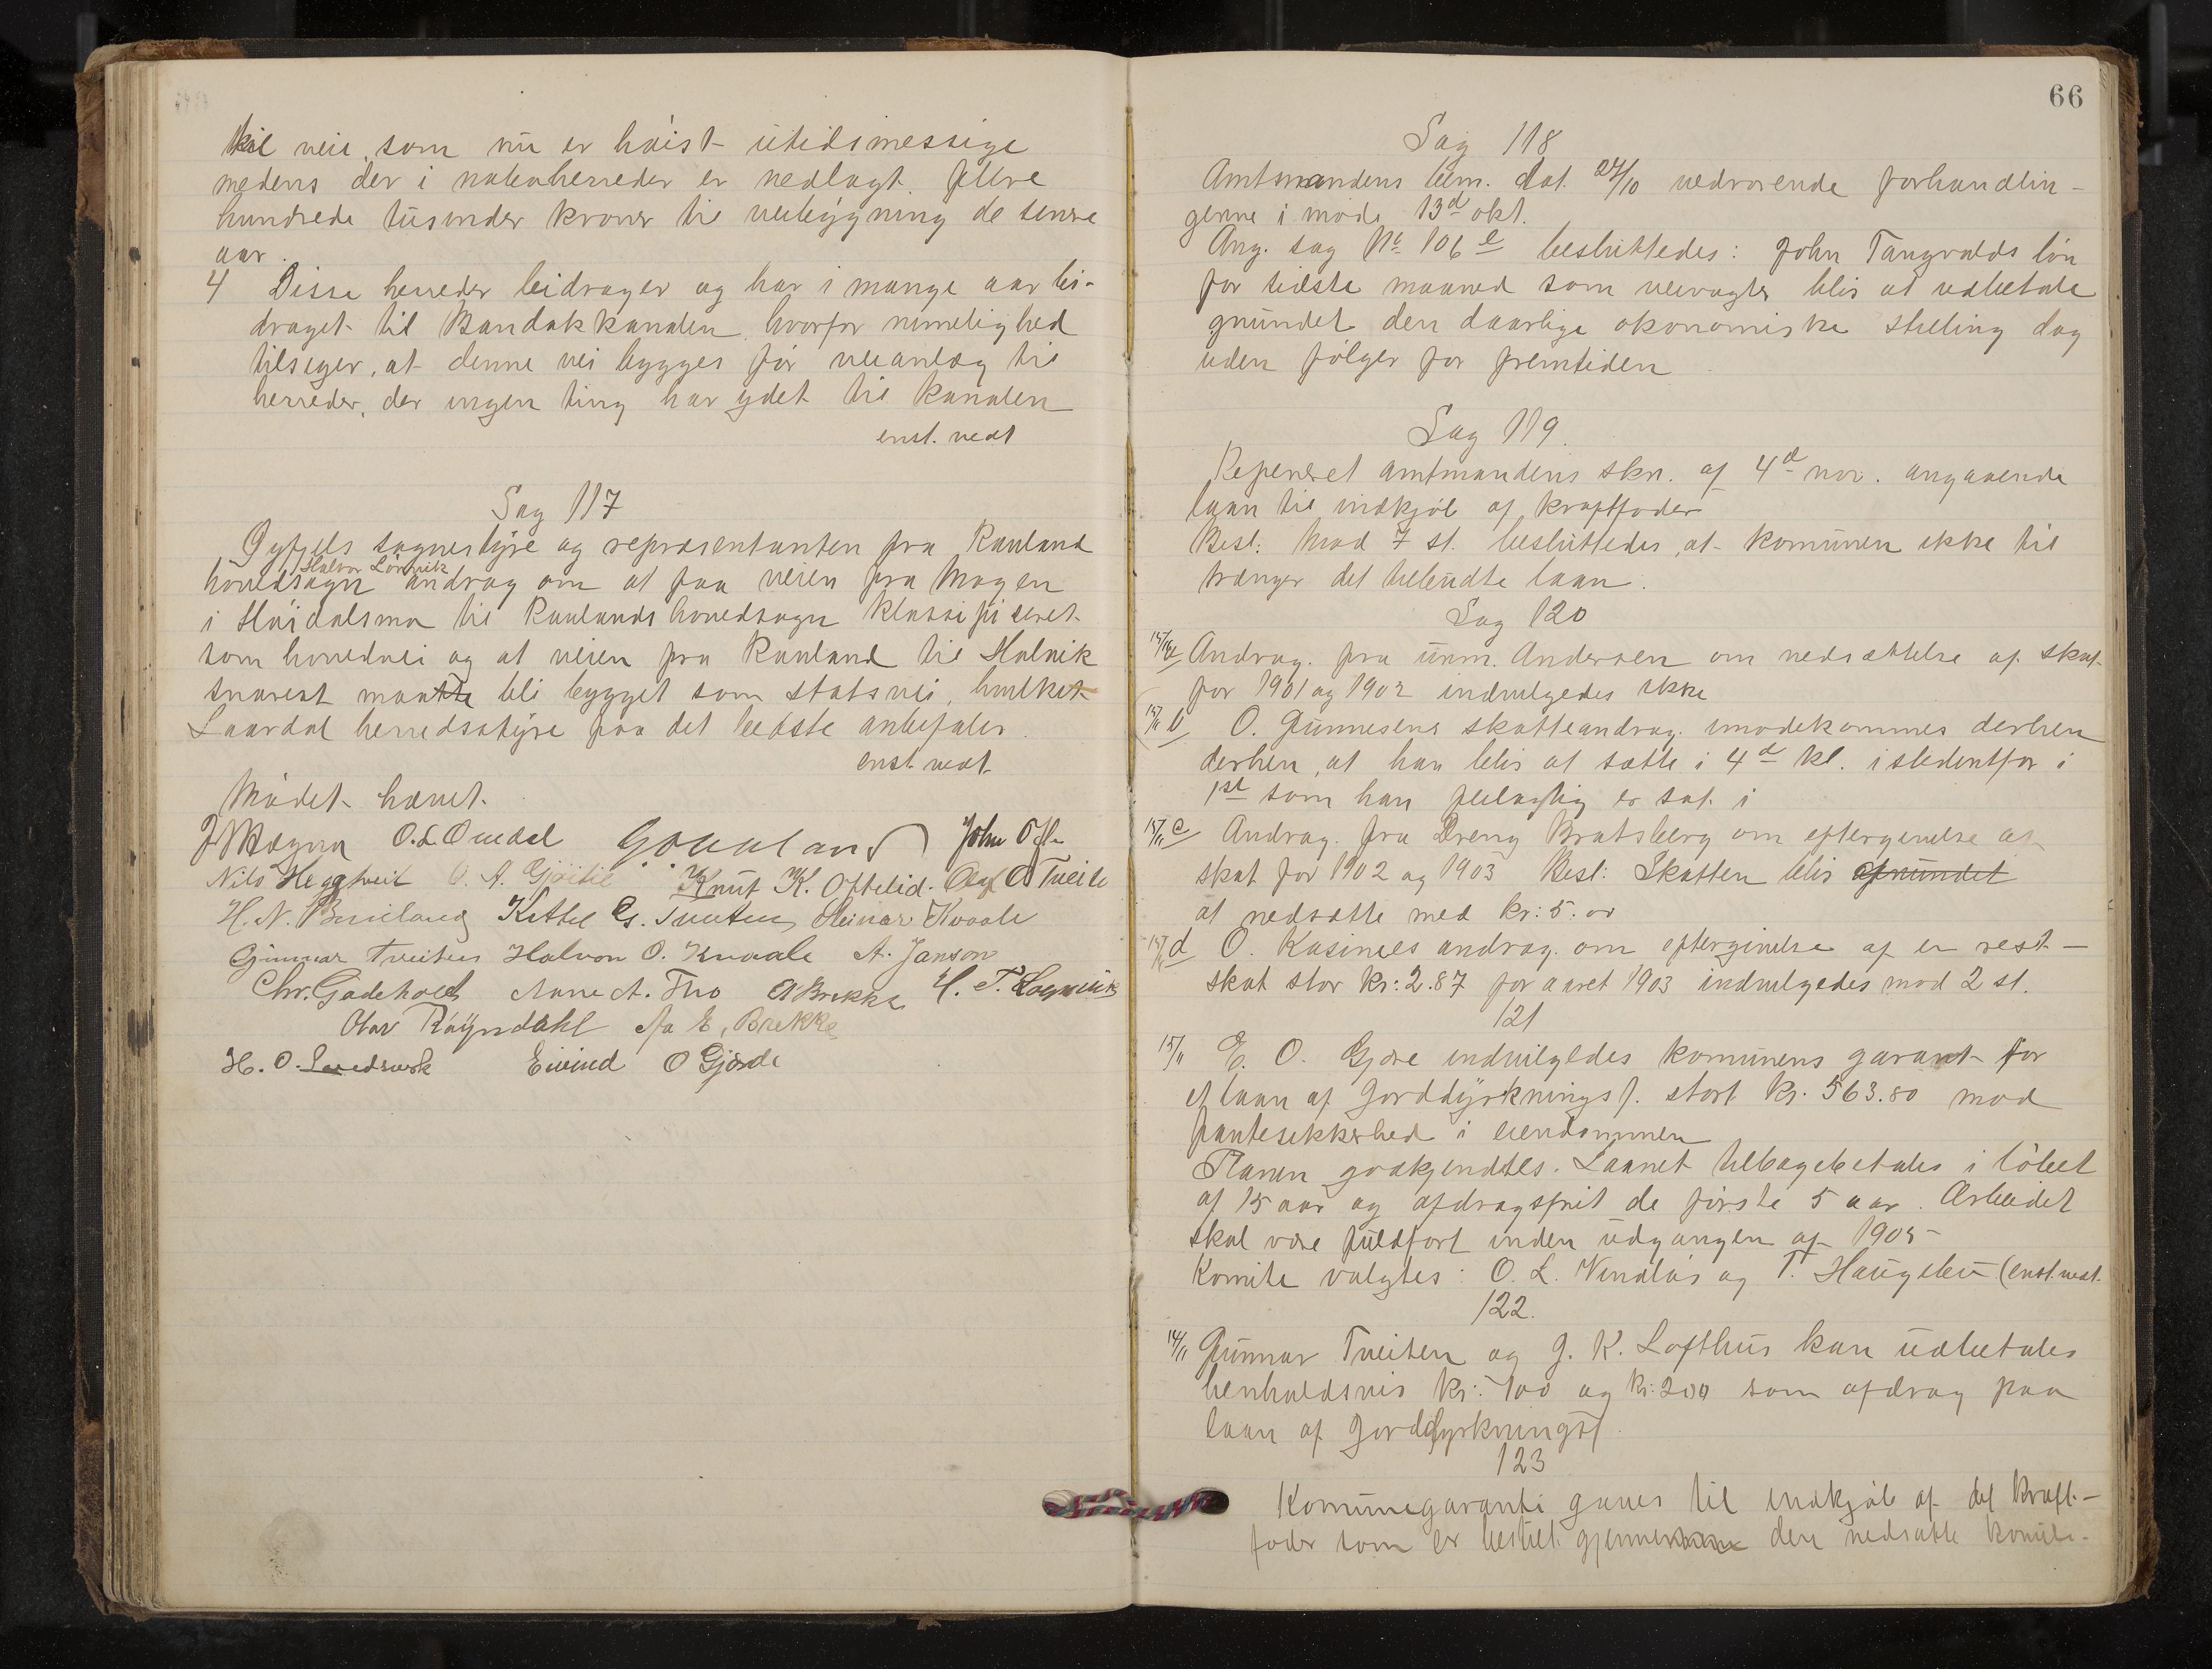 veie, som nu er høist utidsmessige
medens der i naboherreder er nedlagt flere
hundrede tusinder kroner til veibygning de senere
aar.
4 Disse herreder bidrager og har i mange aar bi-
draget til Bandakkanalen, hvorfor rimelighed
tilsiger, at denne vei bygges før veianlæg til
herreder, der ingen ting har ydet til kanalen
enst. vedt
Sag 117
sognestyre og repræsentanten fra Rauland
Halvor Lognvik
hovedsogn andrag om at faa veien fra Mogen
i Høidalsmo til Raulands hovedsogn klassificeret
som hovedvei og at veien fra Rauland til Halnik
snarest maatte bli bygget som statsvei, hvilket
Laardal herredsstyre paa det bedste anbefaler.
enst. vedt.
Mødet hævet.
O. L. Ouedal John Ofte
Nils Heggtveit O. A. Knut K. Oftelid. Olaf O Tveite
H. N. Kittel G. Tveiten Steinar Kvaale
Gunnar Tveiten Halvor O. Kvaale A. Janson
Chr. Gadeholt Aane A. Tho A Brekke H. T. Lognvik
Olav Røyndahl E. Brekke
H. O. Eivind O Gjørde
66
Sag 118
Amtmandens bem. dat. 27/10 vedrørende forhandlin-
gerne i møde 13d okt.
Ang. sag No 106 e besluttedes: John Tangvalds løn
for sidste maaned som veivogter blir at udbetale
grundet den daarlige økonomiske stilling dog
uden følger for fremtiden.
Sag 119.
Refereret amtmandens skr. af 4d nov. angaaende
laan til indkjøb af kraftfoder
Besl: Mod 7 st. besluttedes, at komunen ikke til
trænger det tilbudte laan.
Sag 120
15/11 a Andrag. fra urm. Andersen om nedsættelse af skat
for 1901 og 1902 indvilgedes ikke
15/11 b O. Gunnesens skatteandrag. imødekommes derhen
derhen, at han blir at sætte i 4d kl. istedentfor i
1ste som han feilagtig er sat i
15/11 c Andrag. fra Dreng Bratsberg om eftergivelse af
skat for 1902 og 1903 Besl: Skatten blir afrundet
at nedsætte med kr: 5.00
15/11 d O. andrag. om eftergivelse af en rest-
skat stor kr: 2.87 for aaret 1903 indvilgedes mod 2 st.
121
15/11 E. O. Gjøre indvilgedes komunens garant for
et laan af Jorddyrkningsf. stort kr. 563.80 mod
pantesikkerhed i eiendommen
Planen godkjendtes. Laanet tilbagebetales i løbet
af 15 aar og afdragsfrit de første 5 aar. Arbeidet
skal være fuldført inden udgangen af 1905
Komite valgtes: O. L. Vindlaus og T. Haugelie (enst. vedt.
122.
14/11 Gunnar Tveiten og G. K. Lofthus kan udbetales
henholdsvis kr: 100 og kr: 200 som afdrag paa
laan af Jorddyrkningsf.
123
Komunegaranti gaves til indkjøb af det kraft-
foder som er bestilt gjennem den nedsatte komite.